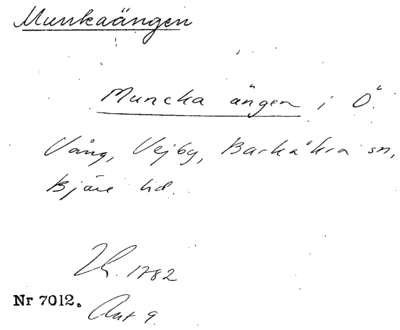 Munkaängen
Muncka ängen i Ö.
Vång, Vejby, Barkåkra sn,
Bjäre hd.
Lh. 1782
Nr 7012. Akt 9